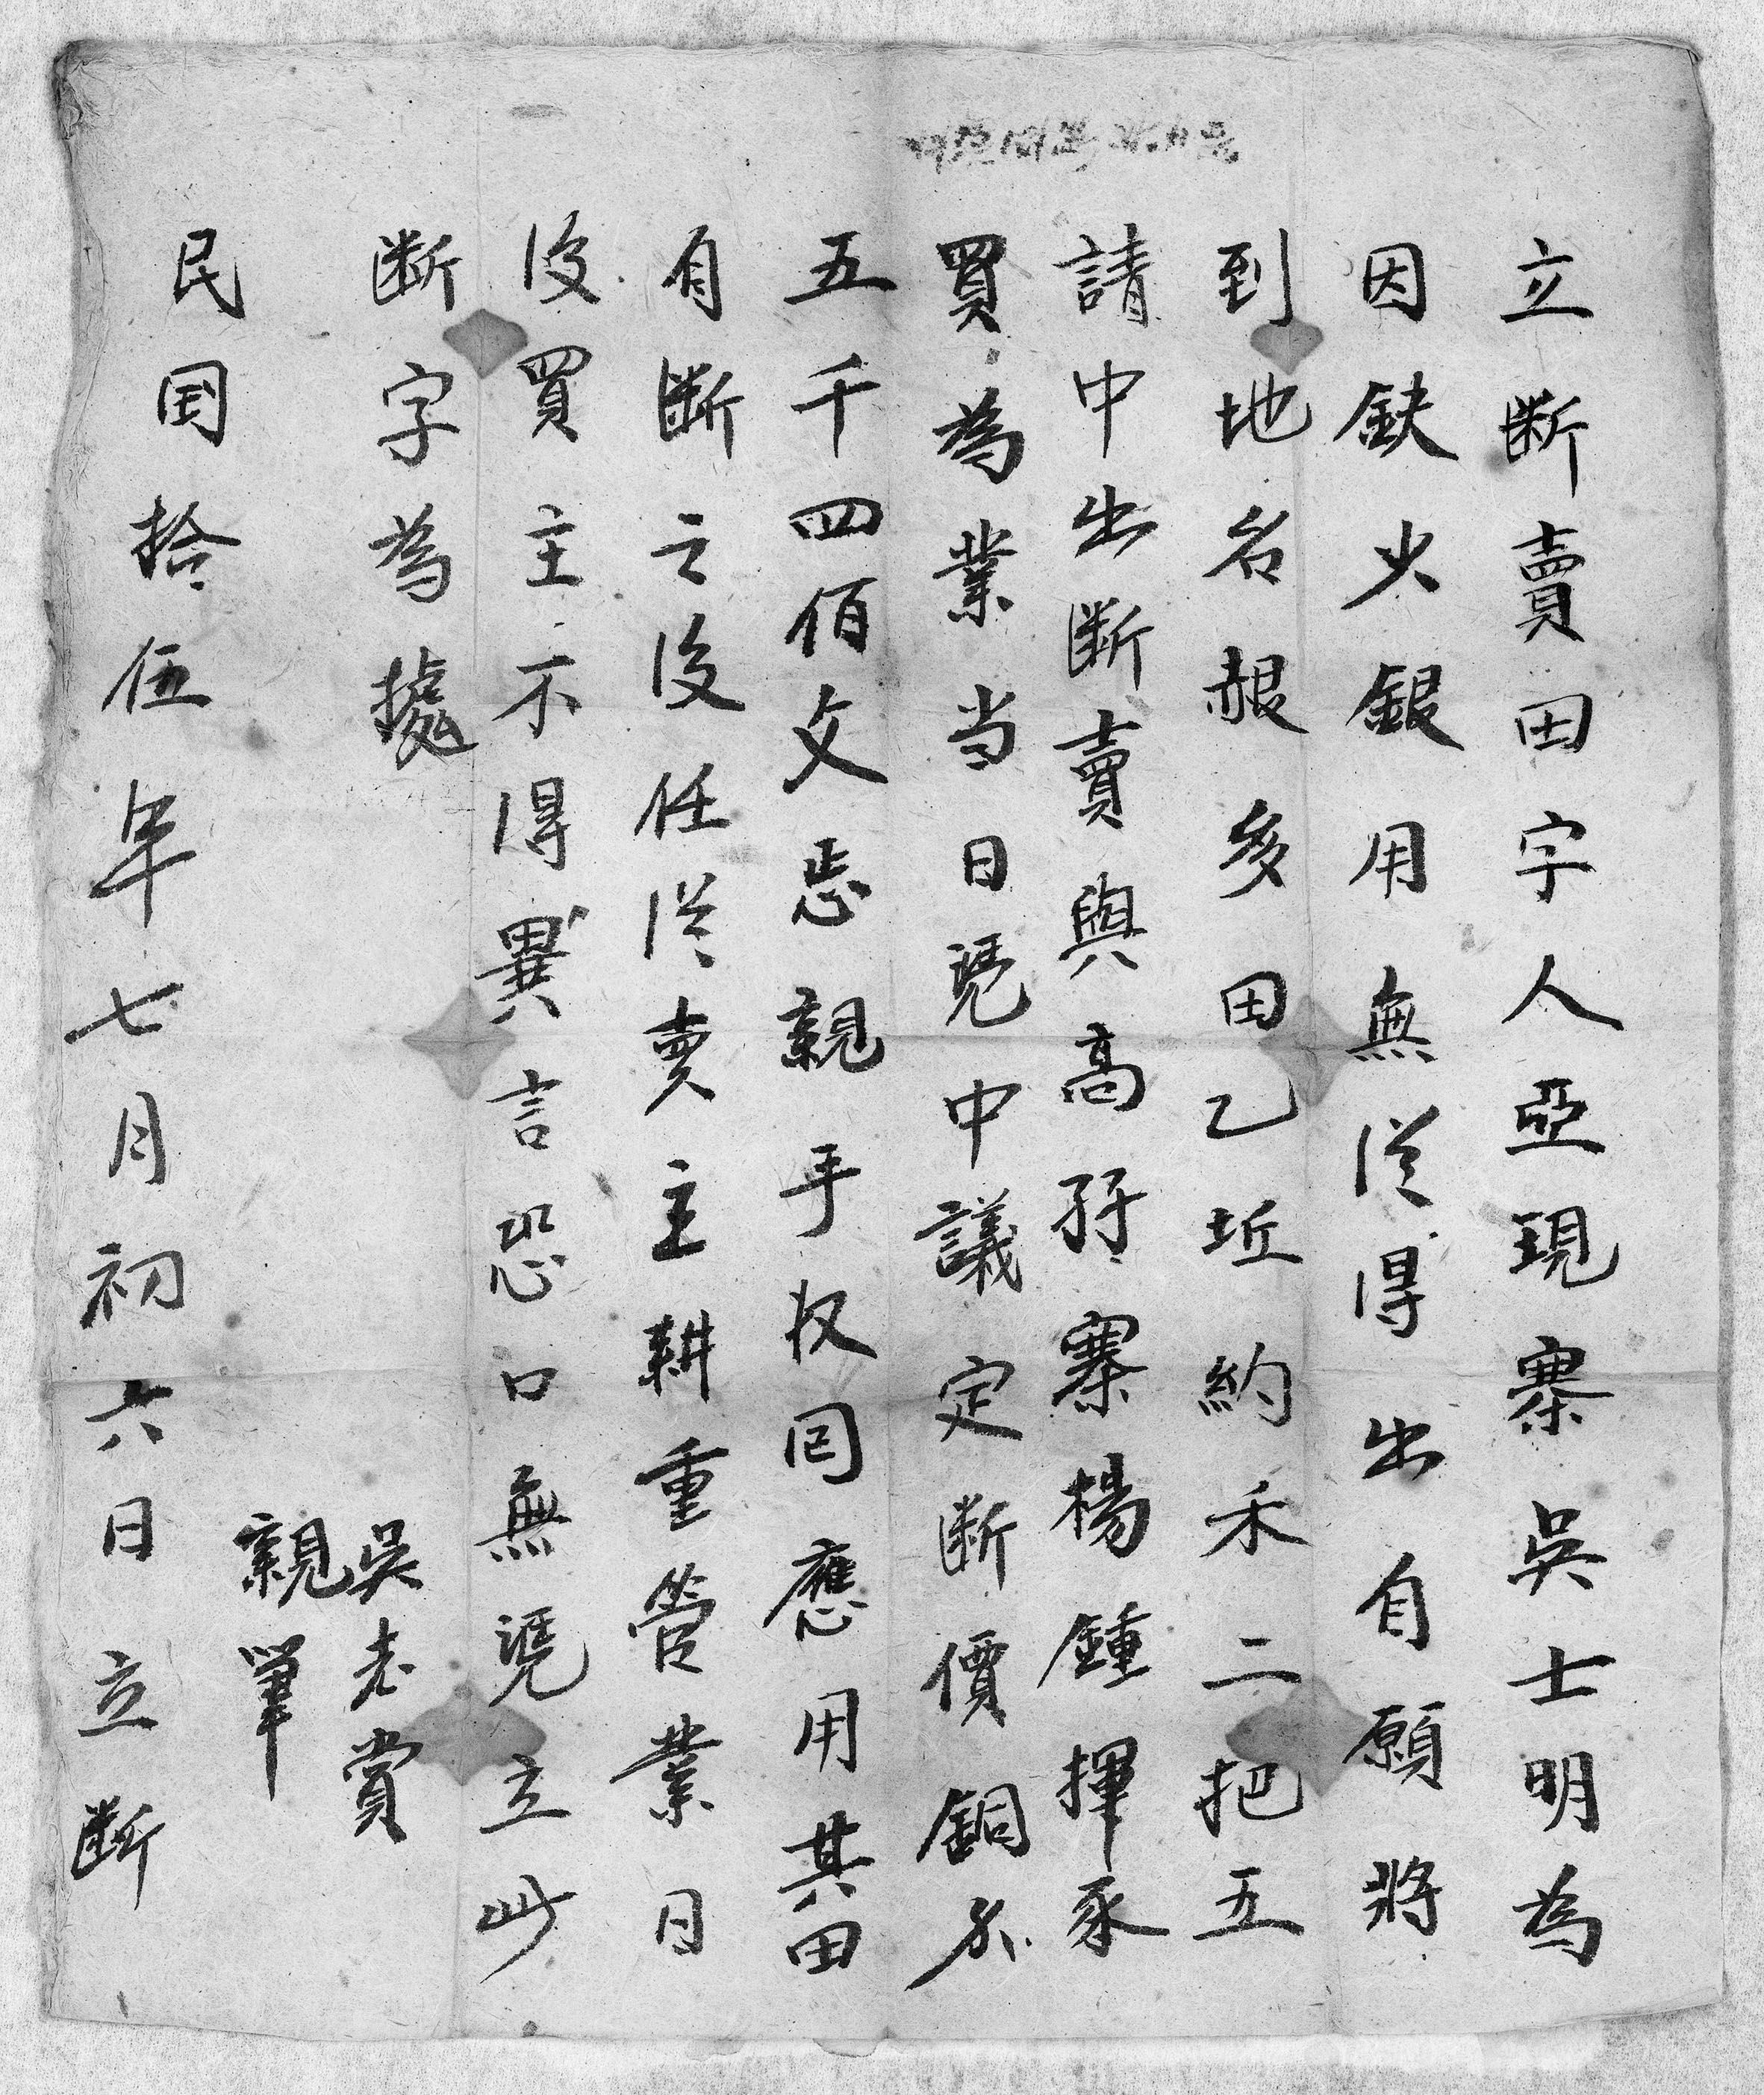 立断賣田字人亞現寨吳士明為
因鈌少銀用無從得出自願將
到地名赧多田乙坵約禾二把五
請中出断賣與高孖寨楊鍾揮承
買為業当日凴中議定断價銅分
五千四佰文㤙親手收囘應用其田
自断之後任從賣主耕重管業日
後買主不得異言恐口無凴立此
断字為據
吳老賞
親筆
民国拾伍年七月初六日立断